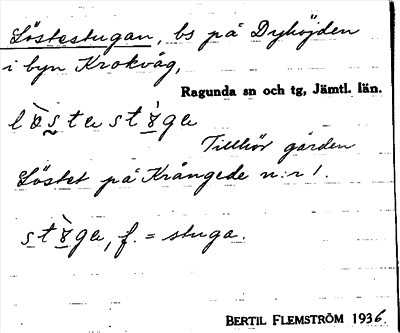 Löstestugan, bs på Dyhöjden
i byn Krokvåg,
Ragunda sn och tg, Jämtl. län.
Tillhör gården
Löstet på Krångede n:r 1.
f. = stuga.
BERTIL FLEMSTRÖM 1936.